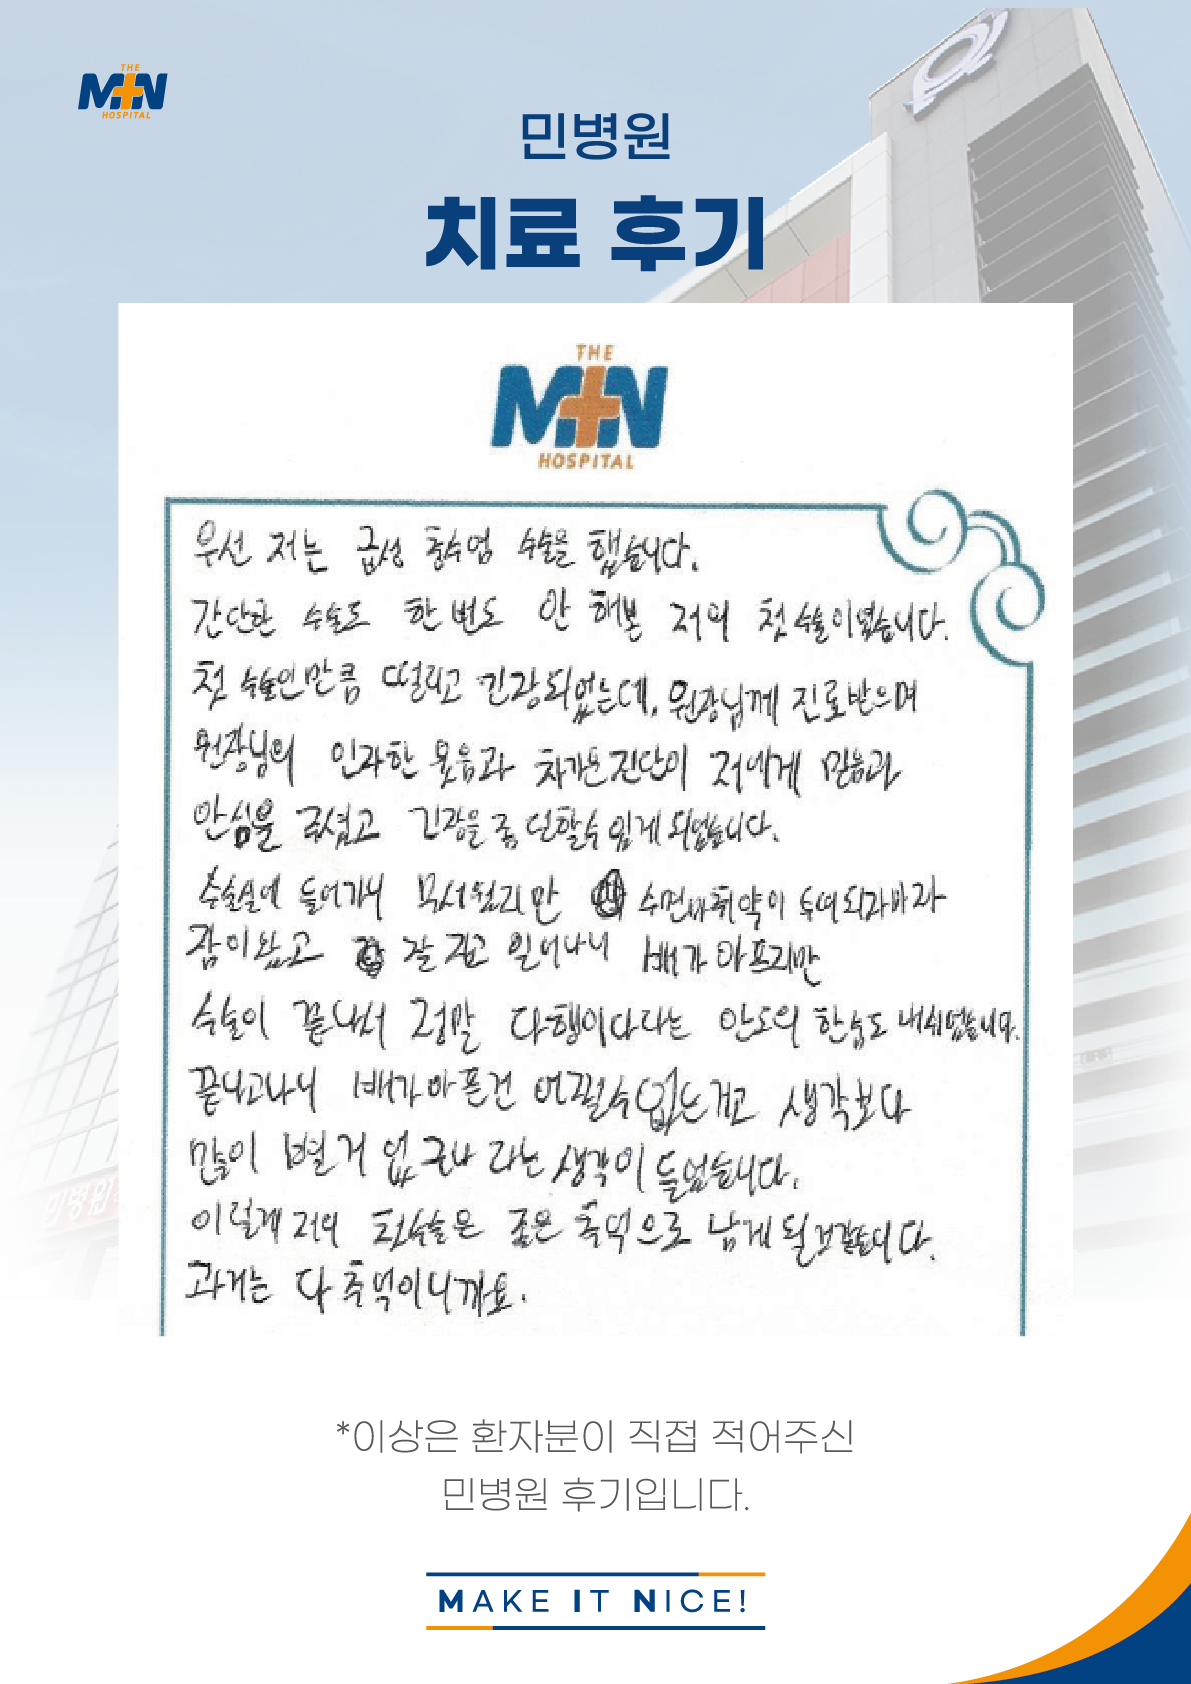 THE
MIN
HOSPITAL
민병원
치료 후기
THE
MIN
HOSPITAL
우선 저는 급성 충수염 수술을 했습니다.
간단한 수술도 한 번도 안 해본 저의 첫 수술이였습니다.
첫 수술인만큼 떨리고 긴장되었는데, 원장님께 진료받으며
원장님의 인자한 웃음과 차가운 진단이 저에게 믿음과
안심을 주셨고 긴장을 좀 덜할수 있게 되었습니다.
수술실에 들어가니 무서웠지만 수면마취약이 투여되자마자
잠이 왔고 잘 자고 일어나니 배가 아프지만
수술이 끝나서 정말 다행이다라는 안도의 한숨도 내쉬었습니다.
끝나고나니 배가아픈건 어쩔수없는거고 생각보다
많이 별거 없구나 라는 생각이 들었습니다.
이렇게 저의 첫수술은 좋은 추억으로 남게 될것같습니다.
과거는 다 추억이니까요.
민병원
*이상은 환자분이 직접 적어주신
민병원 후기입니다.
MAKE IT NICE!